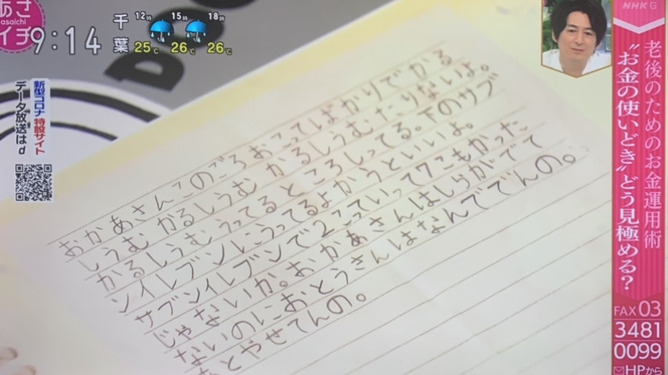 あさ
asaichi
イチ
9:14
千葉
12時 15時 18時
25℃ 26℃ 26℃
新型コロナ 特設サイト
データ放送はd
NHK G
老後のためのお金運用術
“お金の使いどき”どう見極める?
FAX 03
3481
0099
HPから
おかあさんこのごろおこってばかりでかる
しうむ かるしうむたりないよ。
かるしうむうってるところしってる。下のサブ
ンイレブンにうってるよかうといいよ。
サブンイレブンで2こっていって7こもかった
じゃないか。おかあさんはしらがでて
ないのにおとうさんはなんででんの。
とやせてんの。